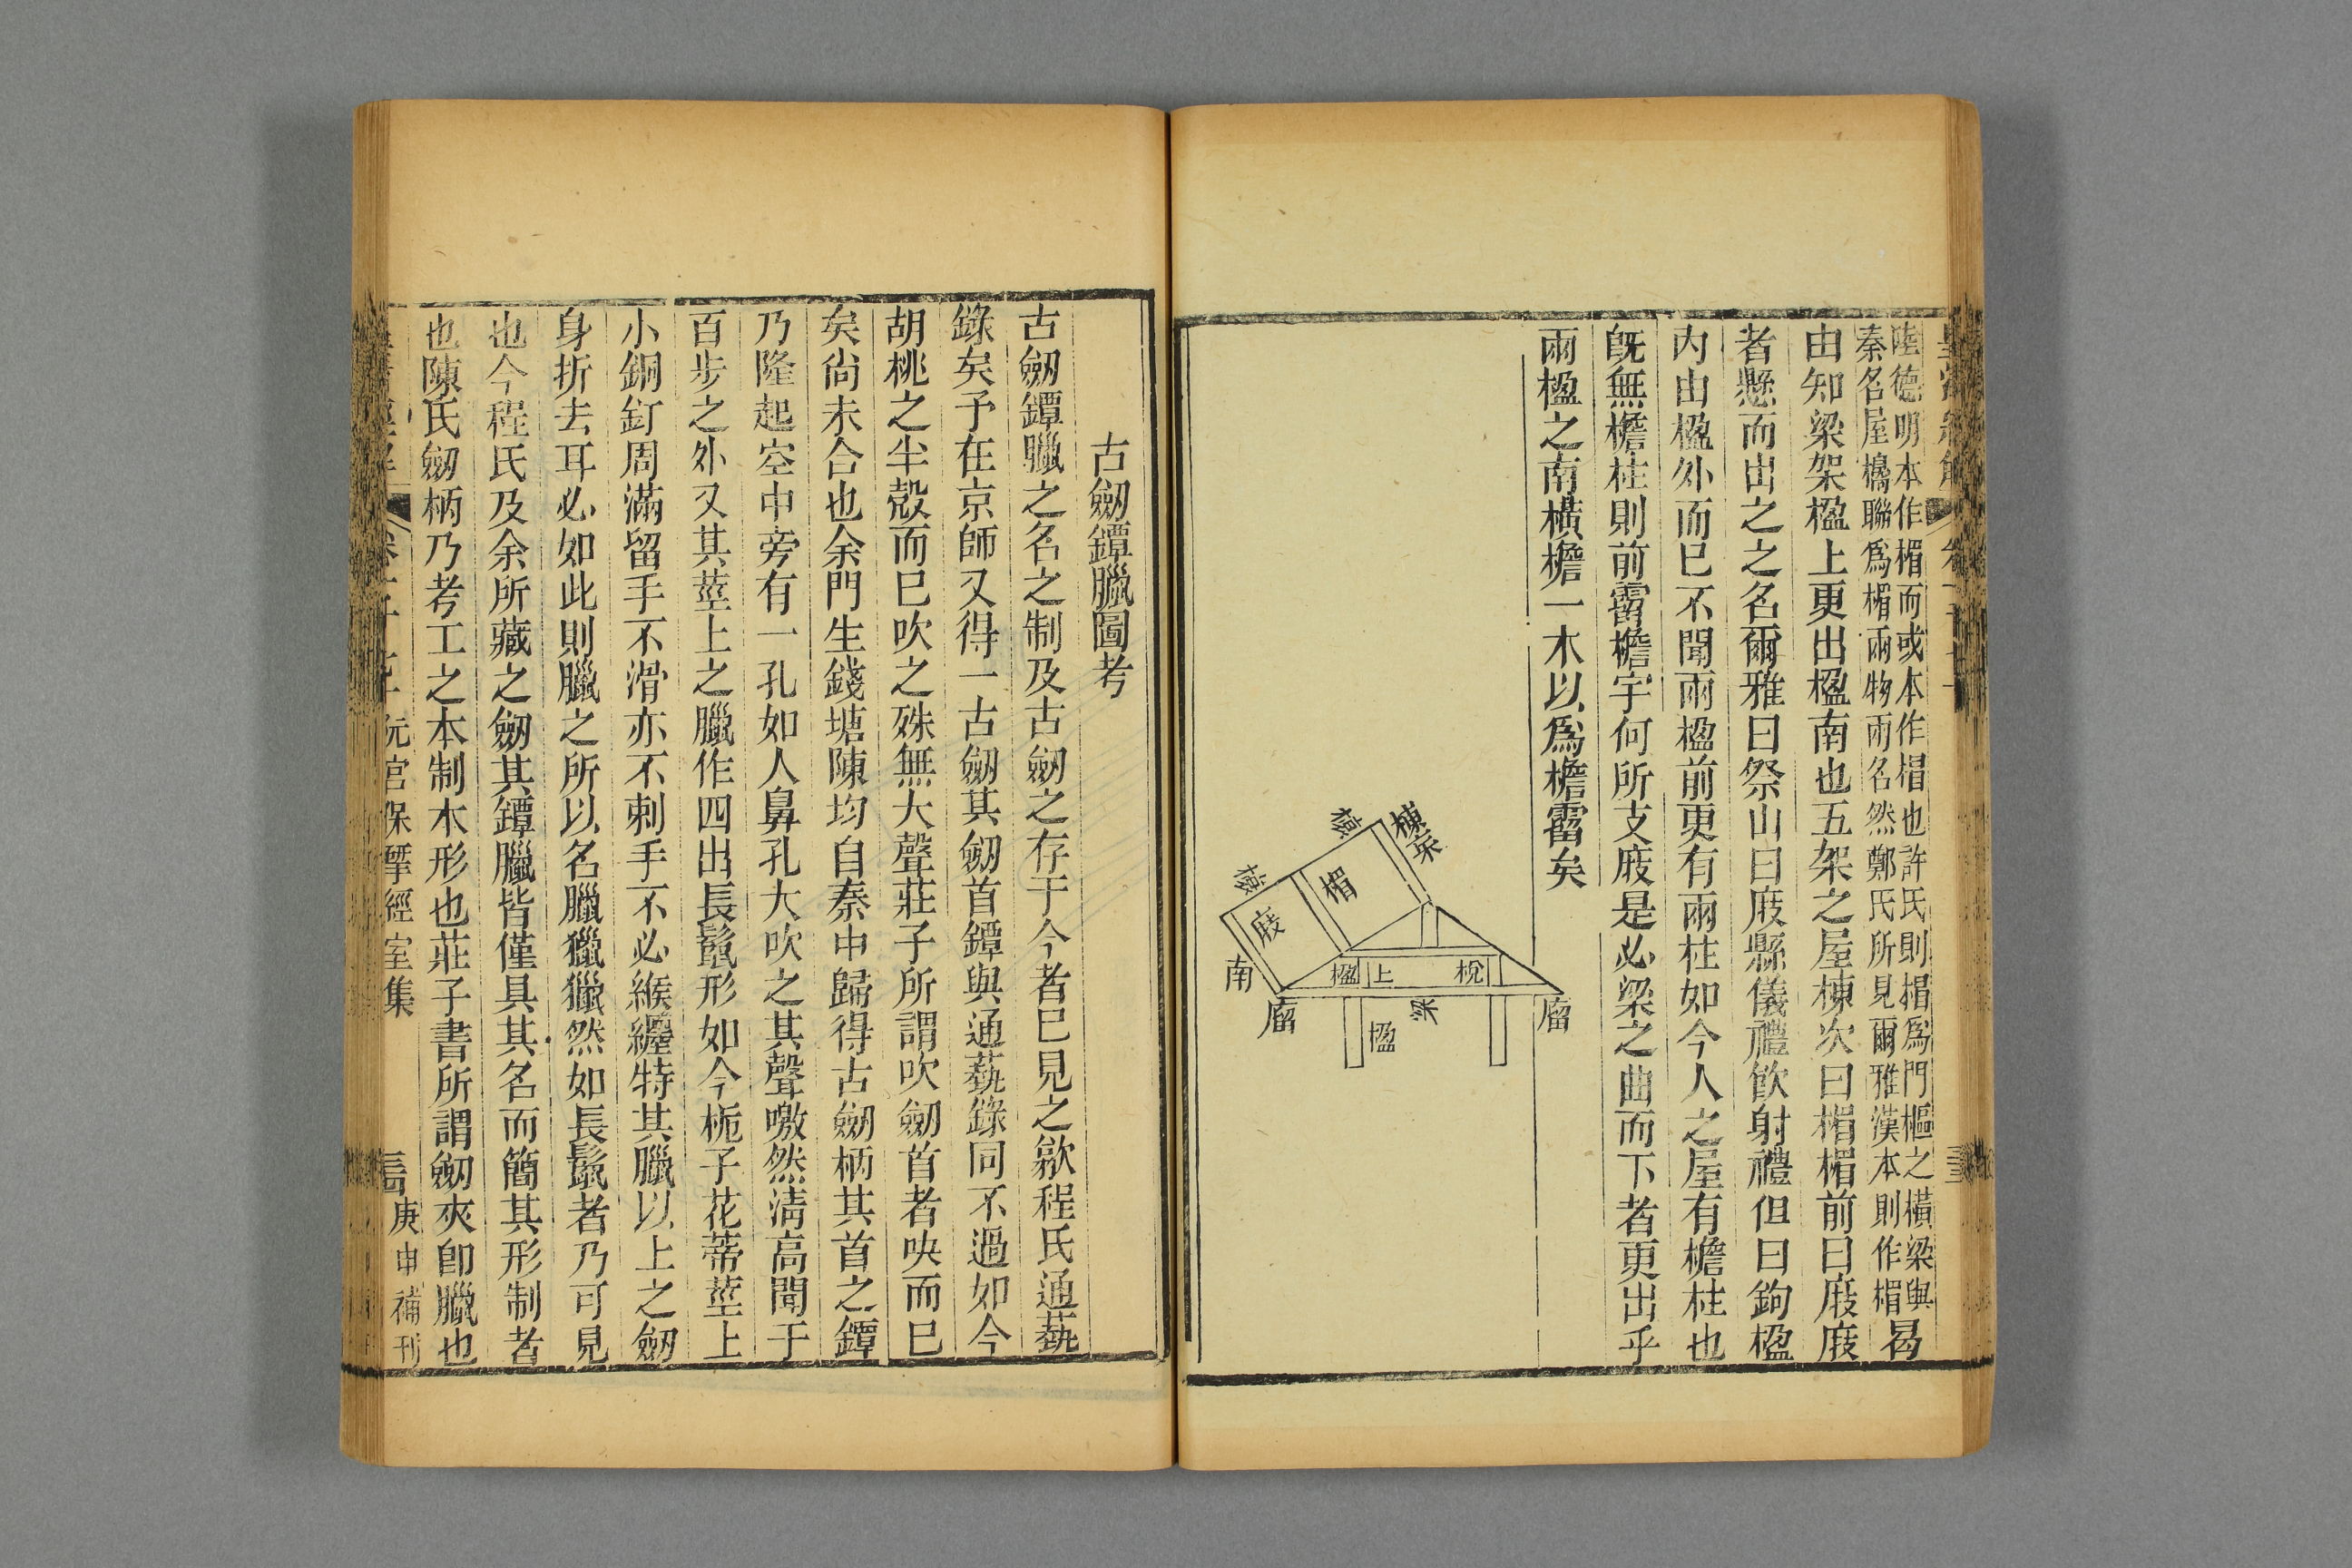 陸德明本作楣而或本作梠也許氏則梠爲門樞之橫梁與
秦名屋櫋聯爲楣兩物兩名然鄭氏所見爾雅漢本則作楣
曷
由知梁架楹上更出楹南也五架之屋棟次曰楣楣前曰庪庪
者懸而出之之名爾雅曰祭山曰庪縣儀禮飮射禮但曰鉤楹
內由楹外而巳不聞兩楹前更有兩柱如今人之屋有檐柱也
旣無檐柱則前霤檐宇何所支庪是必梁之曲而下者更出乎
兩楹之南橫檐一木以爲檐霤矣
棟
楣
庪
南
廇
楹
上
梲
梁
楹
廇
古劒鐔臘圖考
古劒鐔臘之名之制及古劒之存于今者巳見之歙程氏通藝
錄矣予在京師又得一古劒其劒首鐔與通藝錄同不過如今
胡桃之半殼而巳吹之殊無大聲莊子所謂吹劒首者吷而巳
矣尙未合也余門生錢塘陳均自秦中歸得古劒柄其首之鐔
乃隆起空中旁有一孔如人鼻孔大吹之其聲噭然淸高聞于
百步之外又其莖上之臘作四出長鬣形如今梔子花蒂莖上
小銅釘周滿留手不滑亦不刺手不必緱纏特其臘以上之劒
身折去耳必如此則臘之所以名臘獵獵然如長鬣者乃可見
也今程氏及余所藏之劒其鐔臘皆僅具其名而簡其形制者
也陳氏劒柄乃考工之本制木形也莊子書所謂劒夾卽臘也
阮宮保揅經室集
庚申補刊